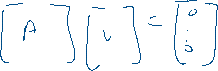 [A] [v] = [0 . 0]